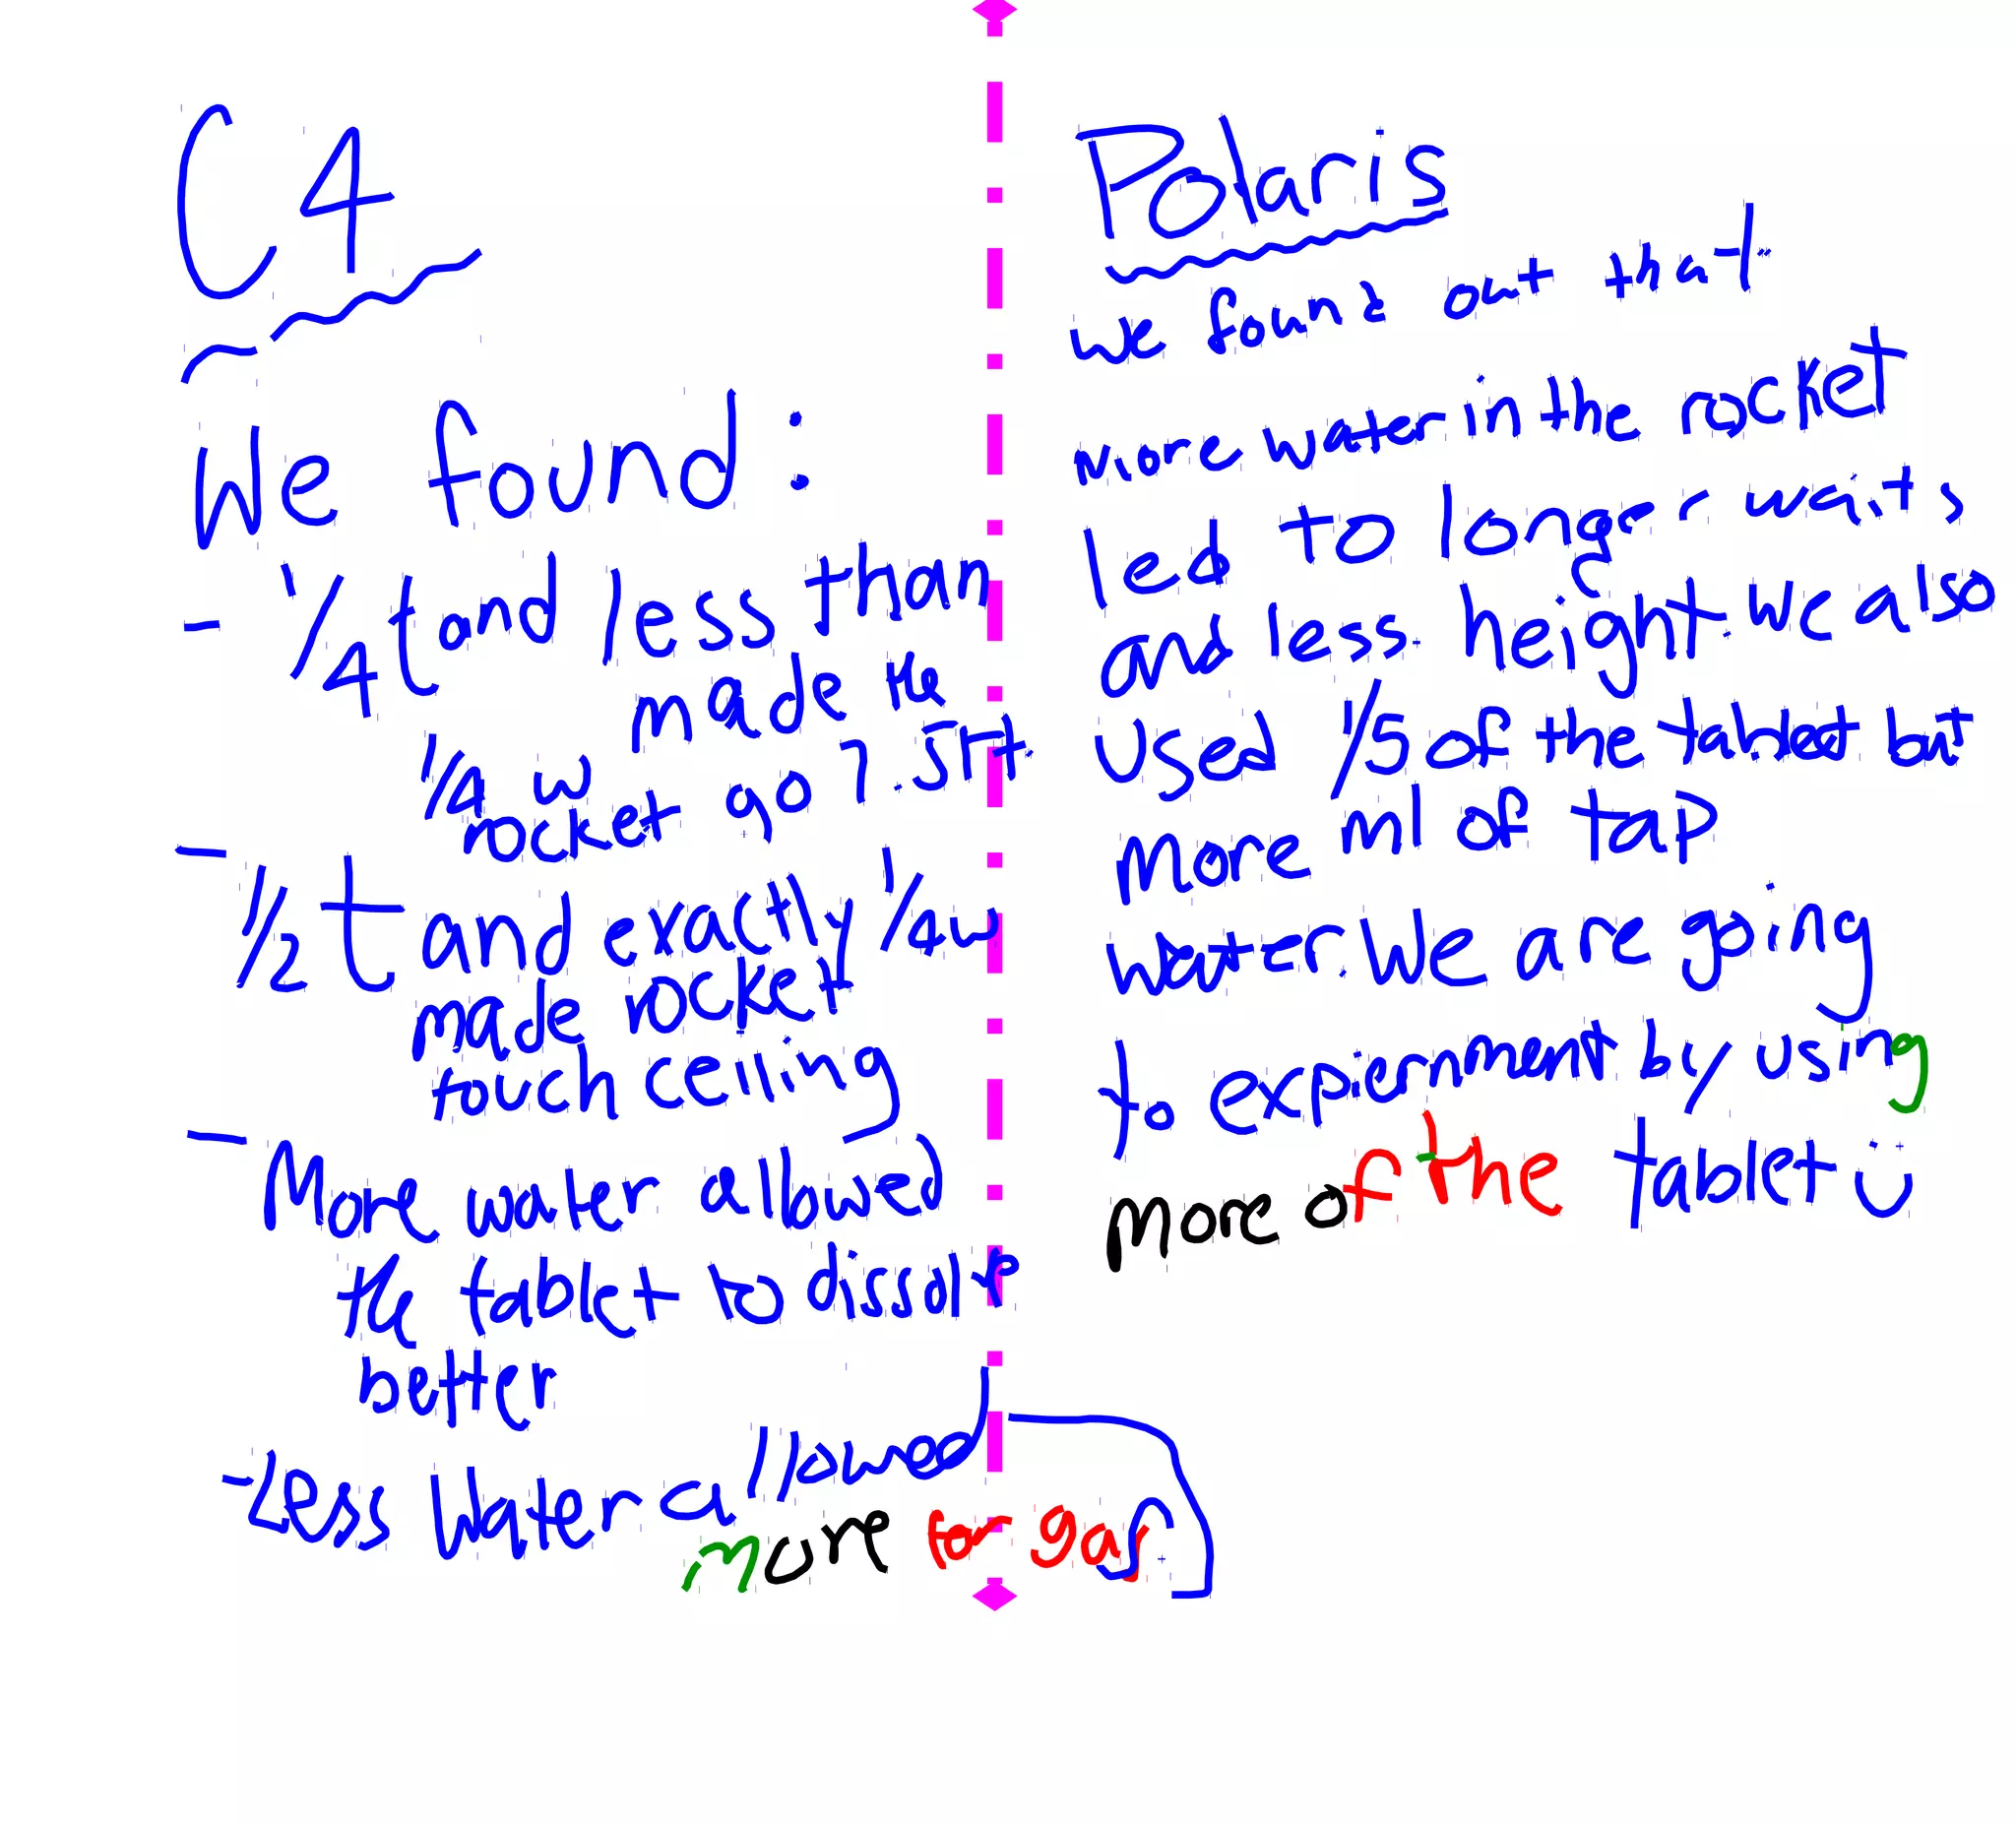 C4
We found:
- 1/4 t and less than
1/4 w made the
rocket go 7.5ft
- 1/2 t and exactly 1/4 w
made rocket
touch ceiling
- More water allowed
the tablet to dissolve
better
- Less water allowed
more for gas
Polaris
we found out that
more water in the rocket
led to longer waits
and less height. We also
used 1/5 of the tablet but
more ml of tap
water. We are going
to experiment by using
more of the tablet